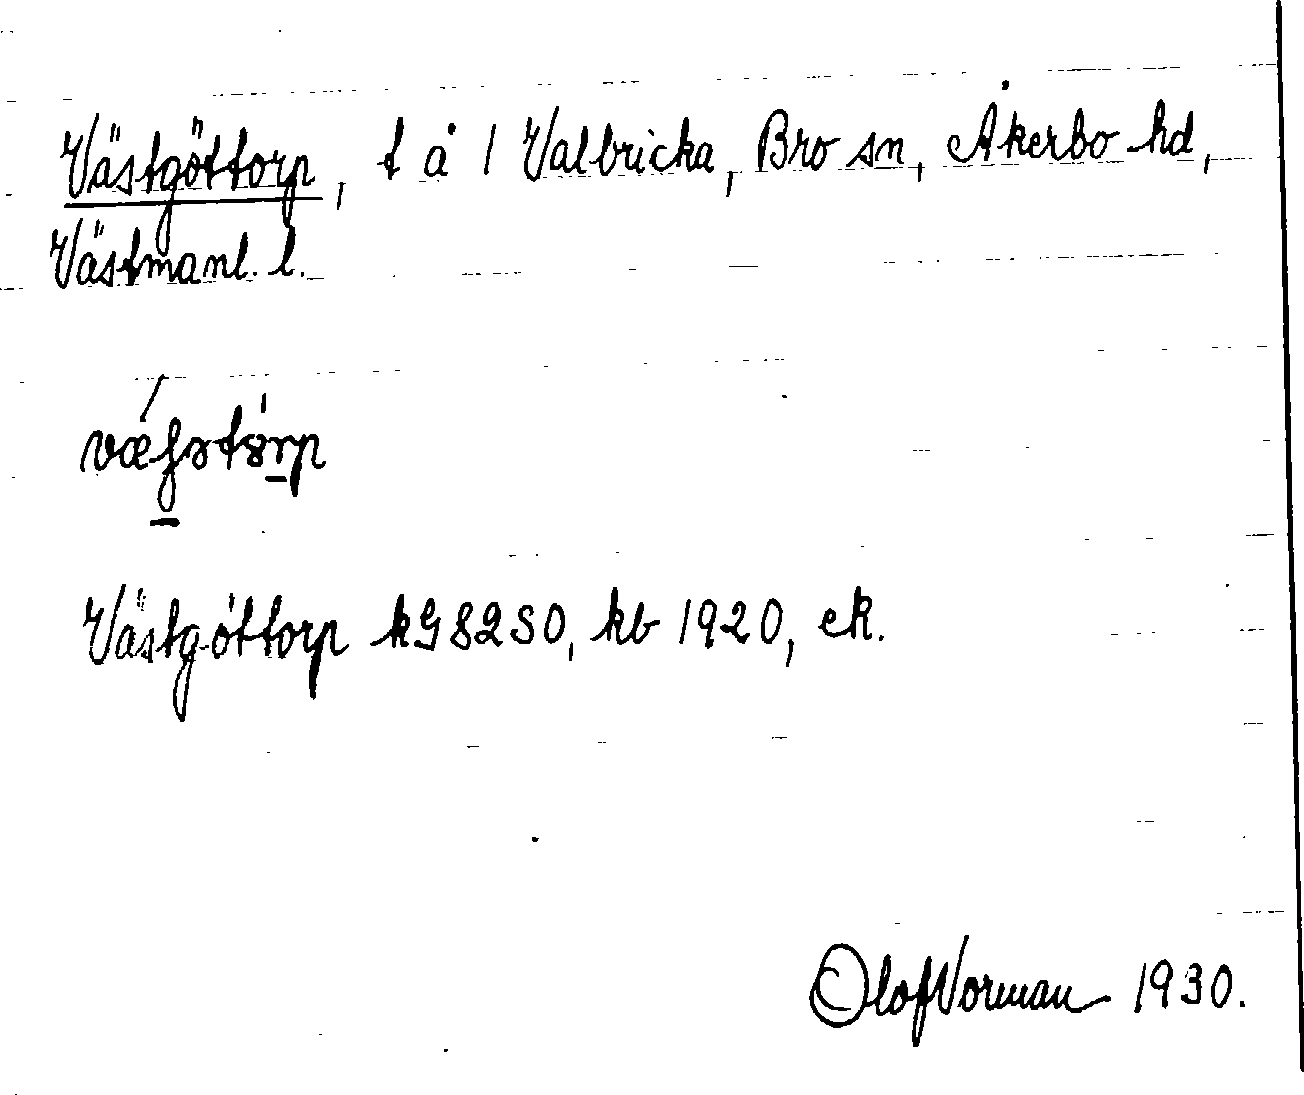 Västgöttorp, t å 1 Valbricka, Bro sn, Åkerbo hd,
Västmanl. l.
Västgöttorp kG 8280, kb 1920, ek.
Olof Norman 1930.